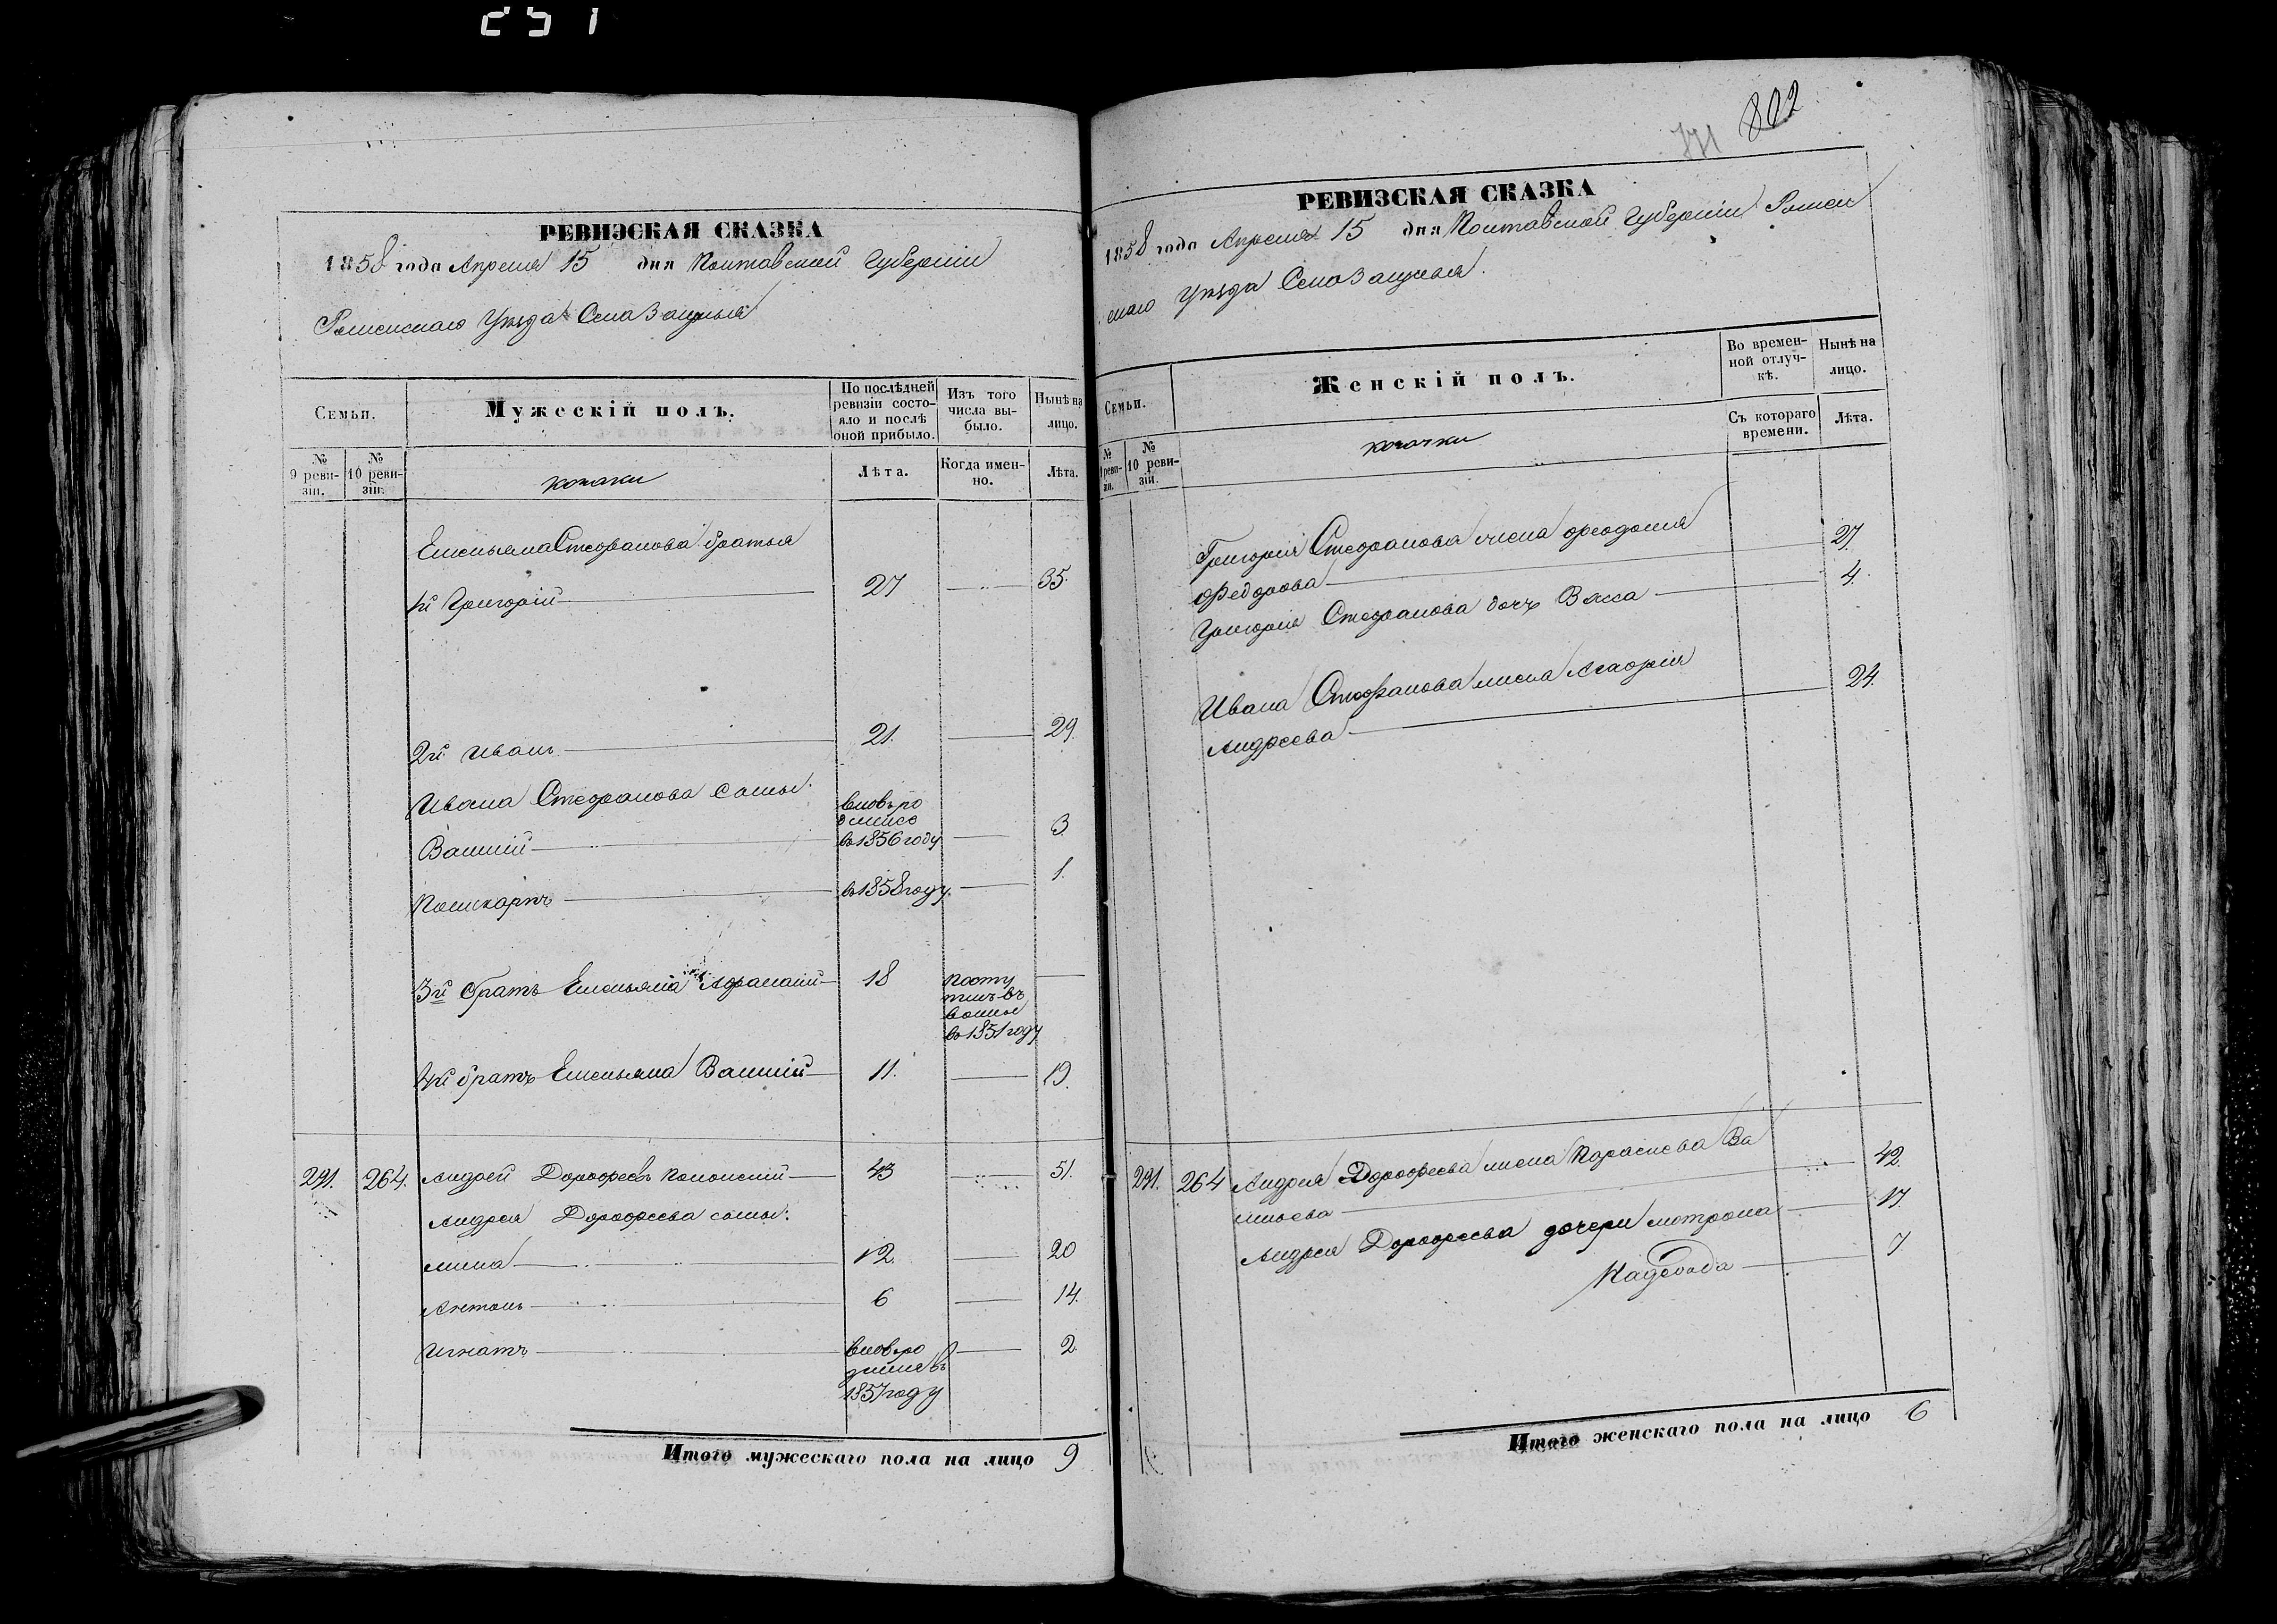 251
РЕВИЗСКАЯ СКАЗКА
1858 года Апреля 15 дня Полтавской Губернии
Роменскаго Уезда Села
Семьи.
Мужескій полъ.
По послѣдней ревизіи состояло и послѣ оной прибыло.
Изъ того числа выбыло.
Нынѣ на лицо.
№ 9 ревизіи.
№ 10 ревизіи.
козаки
Лѣта.
Когда именно.
Лѣта.
Емельяна Стефанова братья
1й Григорій 27 35.
2й Иванъ 21. 29.
Ивана Стефанова сыны.
Василій вновь родился въ 1856 году 3
Поликарпъ въ 1858 году. 1.
3й братъ Емельяна Афанасий 18 въ 1851 году
4й братъ Емельяна Василій 11. 19.
291. 264. Андрей Дорофеевъ 43 51.
Андрея Дорофеева сыны:
мина 12. 20
Антонъ 6 14.
Игнатъ вновь родился въ 1857 году 2
Итого мужескаго пола на лицо 9
802
771
РЕВИЗСКАЯ СКАЗКА
1858 года Апреля 15 дня Полтавской Губерніи Ромен
скаго Уезда Села
Семьи.
Женскій полъ.
Во временной отлучкѣ.
Нынѣ на лицо.
№ 9 ревизіи.
№ 10 ревизіи.
козачки
Съ котораго времени.
Лѣта.
Григорія Стефанова жена феодосия
Федорова 27.
Григорія Стефанова дочь Васса 4.
Ивана Стефанова жена Агафия
Андреева 24.
291. 264 Андрея Дорофеева жена Параскева Ва
сильева 42.
Андрея Дорофеева дочери мотрона 17.
Надежда 7
Итого женскаго пола на лицо 6